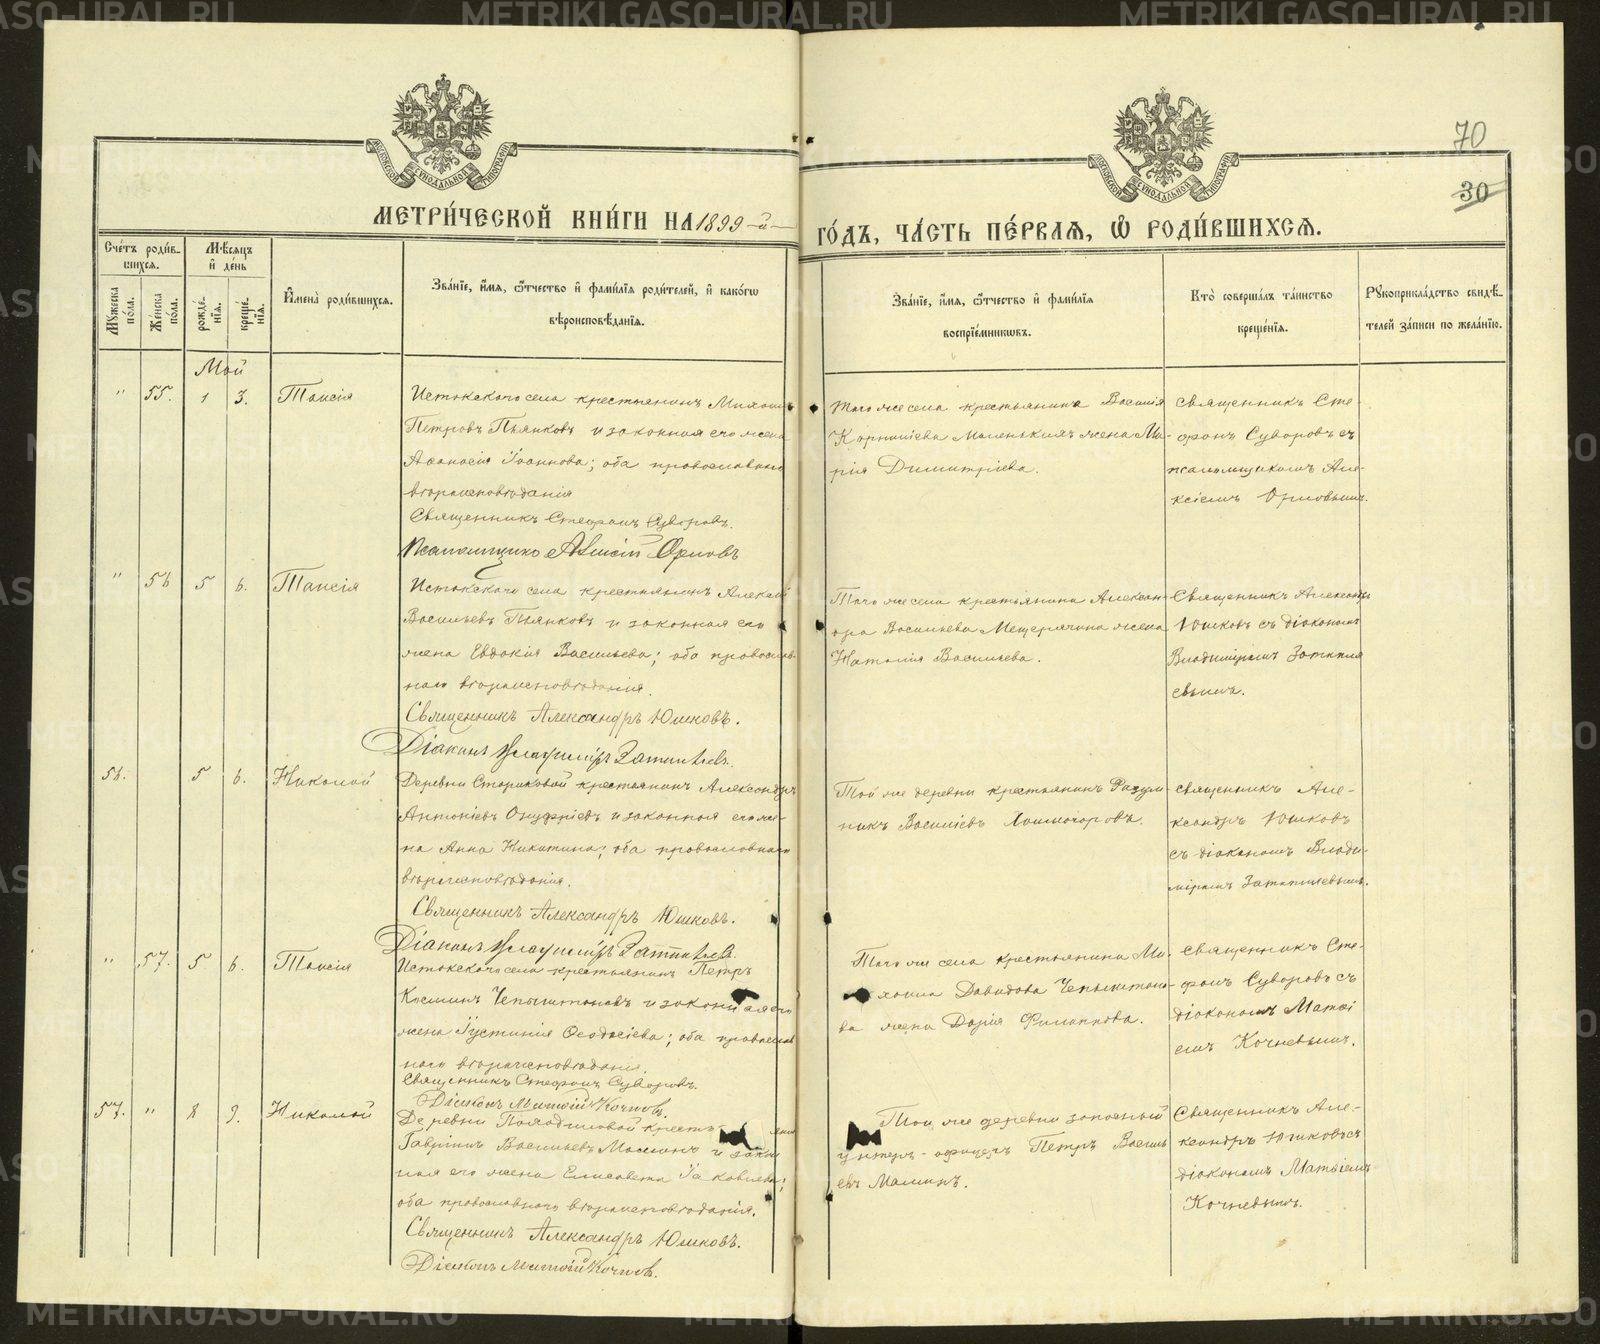 70
30
МЕТРИ́ЧЕСКОЙ КНИ́ГИ НА 1899-й
ГО́ДЪ, ЧА́СТЬ ПЕ́РВАѦ, Ѽ РОДИ́ВШИХСѦ.
Сче́тъ роди́в-
шихся.
Мѣ́сяцъ
и̂ де́нь
Мꙋ́жеска по́ла.
Же́нска по́ла.
рожде́нїя.
креще́нїя.
И̂мена̀ роди́вшихся.
Зва́нїе, и́мя, о́тчество и̂ фами́лїя роди́телей, и̂ како́гѡ
вѣроисповѣ́данїя.
Зва́нїе, и́мя, о́тчество и̂ фами́лїя
воспрїе́мниковъ.
Кто̀ соверша́лъ та́инство
креще́нїя.
Рꙋкоприкла́дство свидѣ́-
телей за́писи по жела́нїю.
Май
" 55. 1 3. Таисія
Истокскаго села крестьянинъ Михаилъ
Петровъ Пьянковъ и законная его жена
Аѳанасія Іоаннова; оба православнаго
вѣроисповѣданія
Священникъ Стефанъ Суворовъ.
Псаломщикъ Алексій Орловъ
Того же села крестьянина Василія
Корнилієва Маленькихъ жена Ма-
рія Димитріева.
Священникъ Сте-
фанъ Суворовъ съ
псаломщикомъ Але-
ксіемъ Орловымъ.
" 56 5 6. Таисія
Истокскаго села крестьянинъ Алексій
Васильевъ Пьянковъ и законная его
жена Евдокія Васильева; оба православ-
наго вѣроисповѣданія.
Священникъ Александръ Юшковъ.
Діаконъ Владиміръ
Того же села крестьянина Алексан-
дра Васильева Мещерягина жена
Наталія Васильева.
Священникъ Александръ
Юшковъ съ діакономъ
Владиміромъ
56. 5 6. Николай
Деревни крестьянинъ Александръ
Антоніевъ Онуфріевъ и законная его же-
на Анна Никитина; оба православнаго
вѣроисповѣданія.
Священникъ Александръ Юшковъ.
Діаконъ Владиміръ
Той же деревни крестьянинъ Разум-
никъ Василіевъ
Священникъ Але-
ксандръ Юшковъ
съ діакономъ Влади-
міромъ
" 57. 5 6. Таисія
Истокскаго села крестьянинъ Петръ
Косминъ Чепыштановъ и законная его
жена Іустинія Ѳеодосіева; оба православ-
наго вѣроисповѣданія.
Священникъ Стефанъ Суворовъ.
Діаконъ Матѳій Кочневъ.
Того же села крестьянина Ми-
хаила Давидова Чепыштано-
ва жена Дарія Филиппова.
Священникъ Сте-
фанъ Суворовъ съ
діакономъ Матѳі-
емъ Кочневымъ.
57. " 8 9. Николай
Деревни
Гавріилъ Васильевъ Малинъ и закон-
ная его жена Елисавета Іаковлева;
оба православнаго вѣроисповѣданія.
Священникъ Александръ Юшковъ.
Діаконъ Матѳій Кочневъ.
Той же деревни запасный
унтеръ-офицеръ Петръ Василь-
евъ Малинъ.
Священникъ Але-
ксандръ Юшковъ съ
діакономъ Матѳіемъ
Кочневымъ.
METRIKI.GASO-URAL.RU